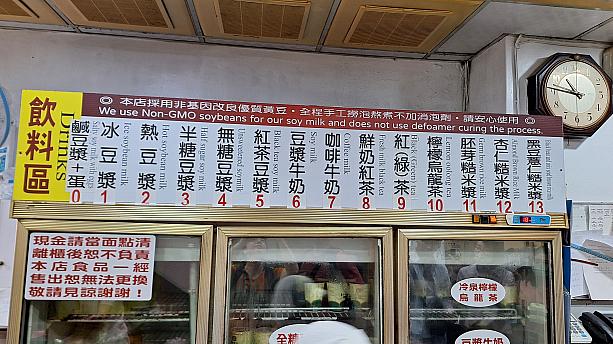 飲料區
Drinks
◎ 本店採用非基因改良優質黃豆，全程手工撈泡熬煮不加消泡劑，請安心使用 ◎
We use Non-GMO soybeans for our soy milk and does not use defoamer curing the process.
鹹豆漿+蛋
0
冰豆漿
Ice soybean milk
1
熱豆漿
Hot soybean milk
2
半糖豆漿
Half sugar soy milk
3
無糖豆漿
Unsweetened soymilk
4
紅茶豆漿
Black tea soy milk
5
豆漿牛奶
Soy milk
6
咖啡牛奶
Coffee milk
7
鮮奶紅茶
Fresh milk black tea
8
紅綠茶
Black (Green) tea
9
檸檬烏龍茶
Lemon oolong tea
10
胚芽糙米漿
Germ brown rice milk
11
杏仁糙米漿
12
黑豆薏仁糙米漿
13
現金請當面點清
離櫃後恕不負責
本店食品一經
售出恕無法更換
敬請見諒謝謝！
冷泉檸檬
烏龍茶
全糖
豆漿牛奶